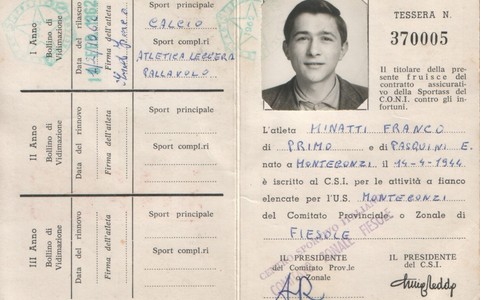 I Anno
Bollino di
Vidimazione
Data del rilascio
Firma dell'atleta
Sport principale
CALCIO
Sport compl.ri
ATLETICA LEGGERA
PALLAVOLO
II Anno
Bollino di
Vidimazione
Data del rinnovo
Firma dell'atleta
Sport principale
Sport compl.ri
III Anno
Bollino di
Vidimazione
Data del rinnovo
Firma dell'atleta
Sport principale
Sport compl.ri
TESSERA N.
370005
Il titolare della pre-
sente fruisce del
contratto assicurati-
vo della Sportass del
C.O.N.I. contro gli in-
fortuni.
L'atleta MINATTI FRANCO
di PRIMO e di PASQUINI E.
nato a MONTEGONZI il 14-4-1944
è iscritto al C.S.I. per le attività a fianco
elencate per l'U.S. MONTEGONZI
del Comitato Provinciale o Zonale di
FIESOLE
CENTRO SPORTIVO ITALIANO
FIESOLE
IL PRESIDENTE
del Comitato Prov.le
o Zonale
IL PRESIDENTE
del C.S.I.